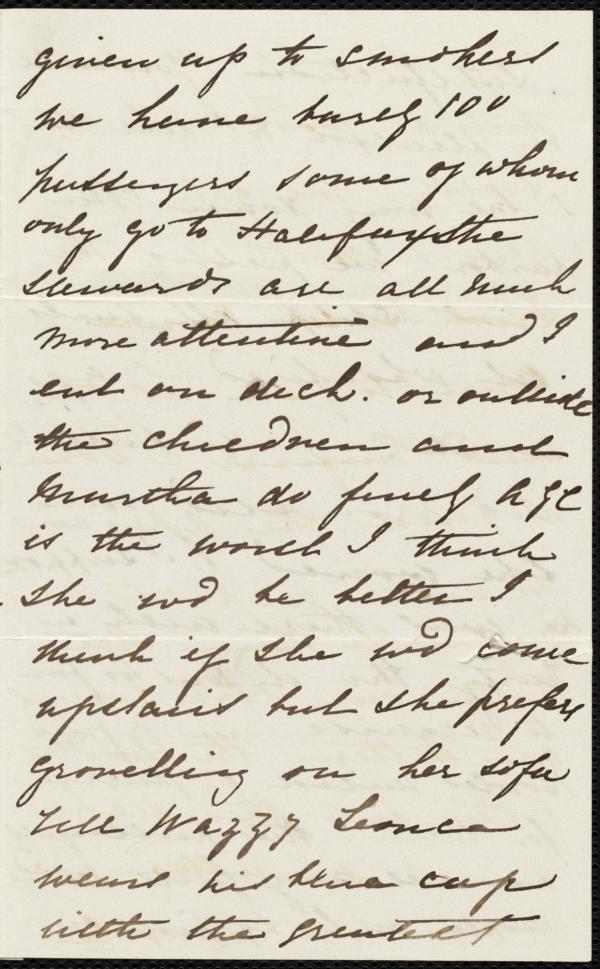 given up to smokers
we have barely 100
passengers some of whom
only go to Halifax the
stewards are all much
more attentive and I
eat on deck. or outside
the children and
Martha do finely AGC
is the worst I think
she wd be better I
think if she wd come
upstairs but she prefers
grovelling on her sofa
tell Wazzy Leonce
wears his blue cap
with the greatest